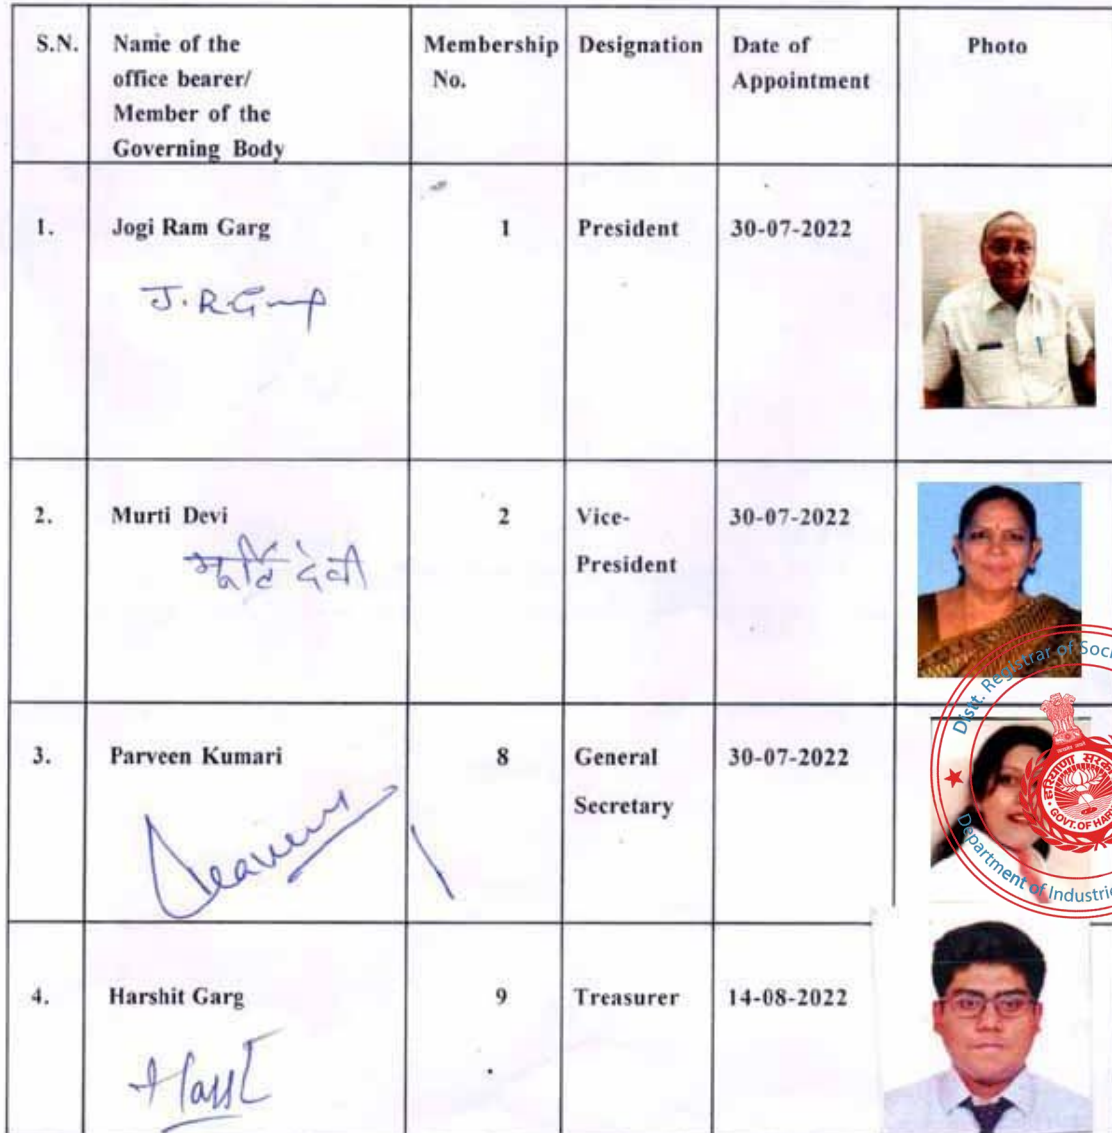 S.N. Name of the office bearer/ Member of the Governing Body Membership No. Designation Date of Appointment Photo
1. Jogi Ram Garg 1 President 30-07-2022
2. Murti Devi 2 Vice-President 30-07-2022
मूर्ति देवी
3. Parveen Kumari 8 General Secretary 30-07-2022
4. Harshit Garg 9 Treasurer 14-08-2022
Distt. Registrar of
Department of
GOVT.OF
हरियाणा